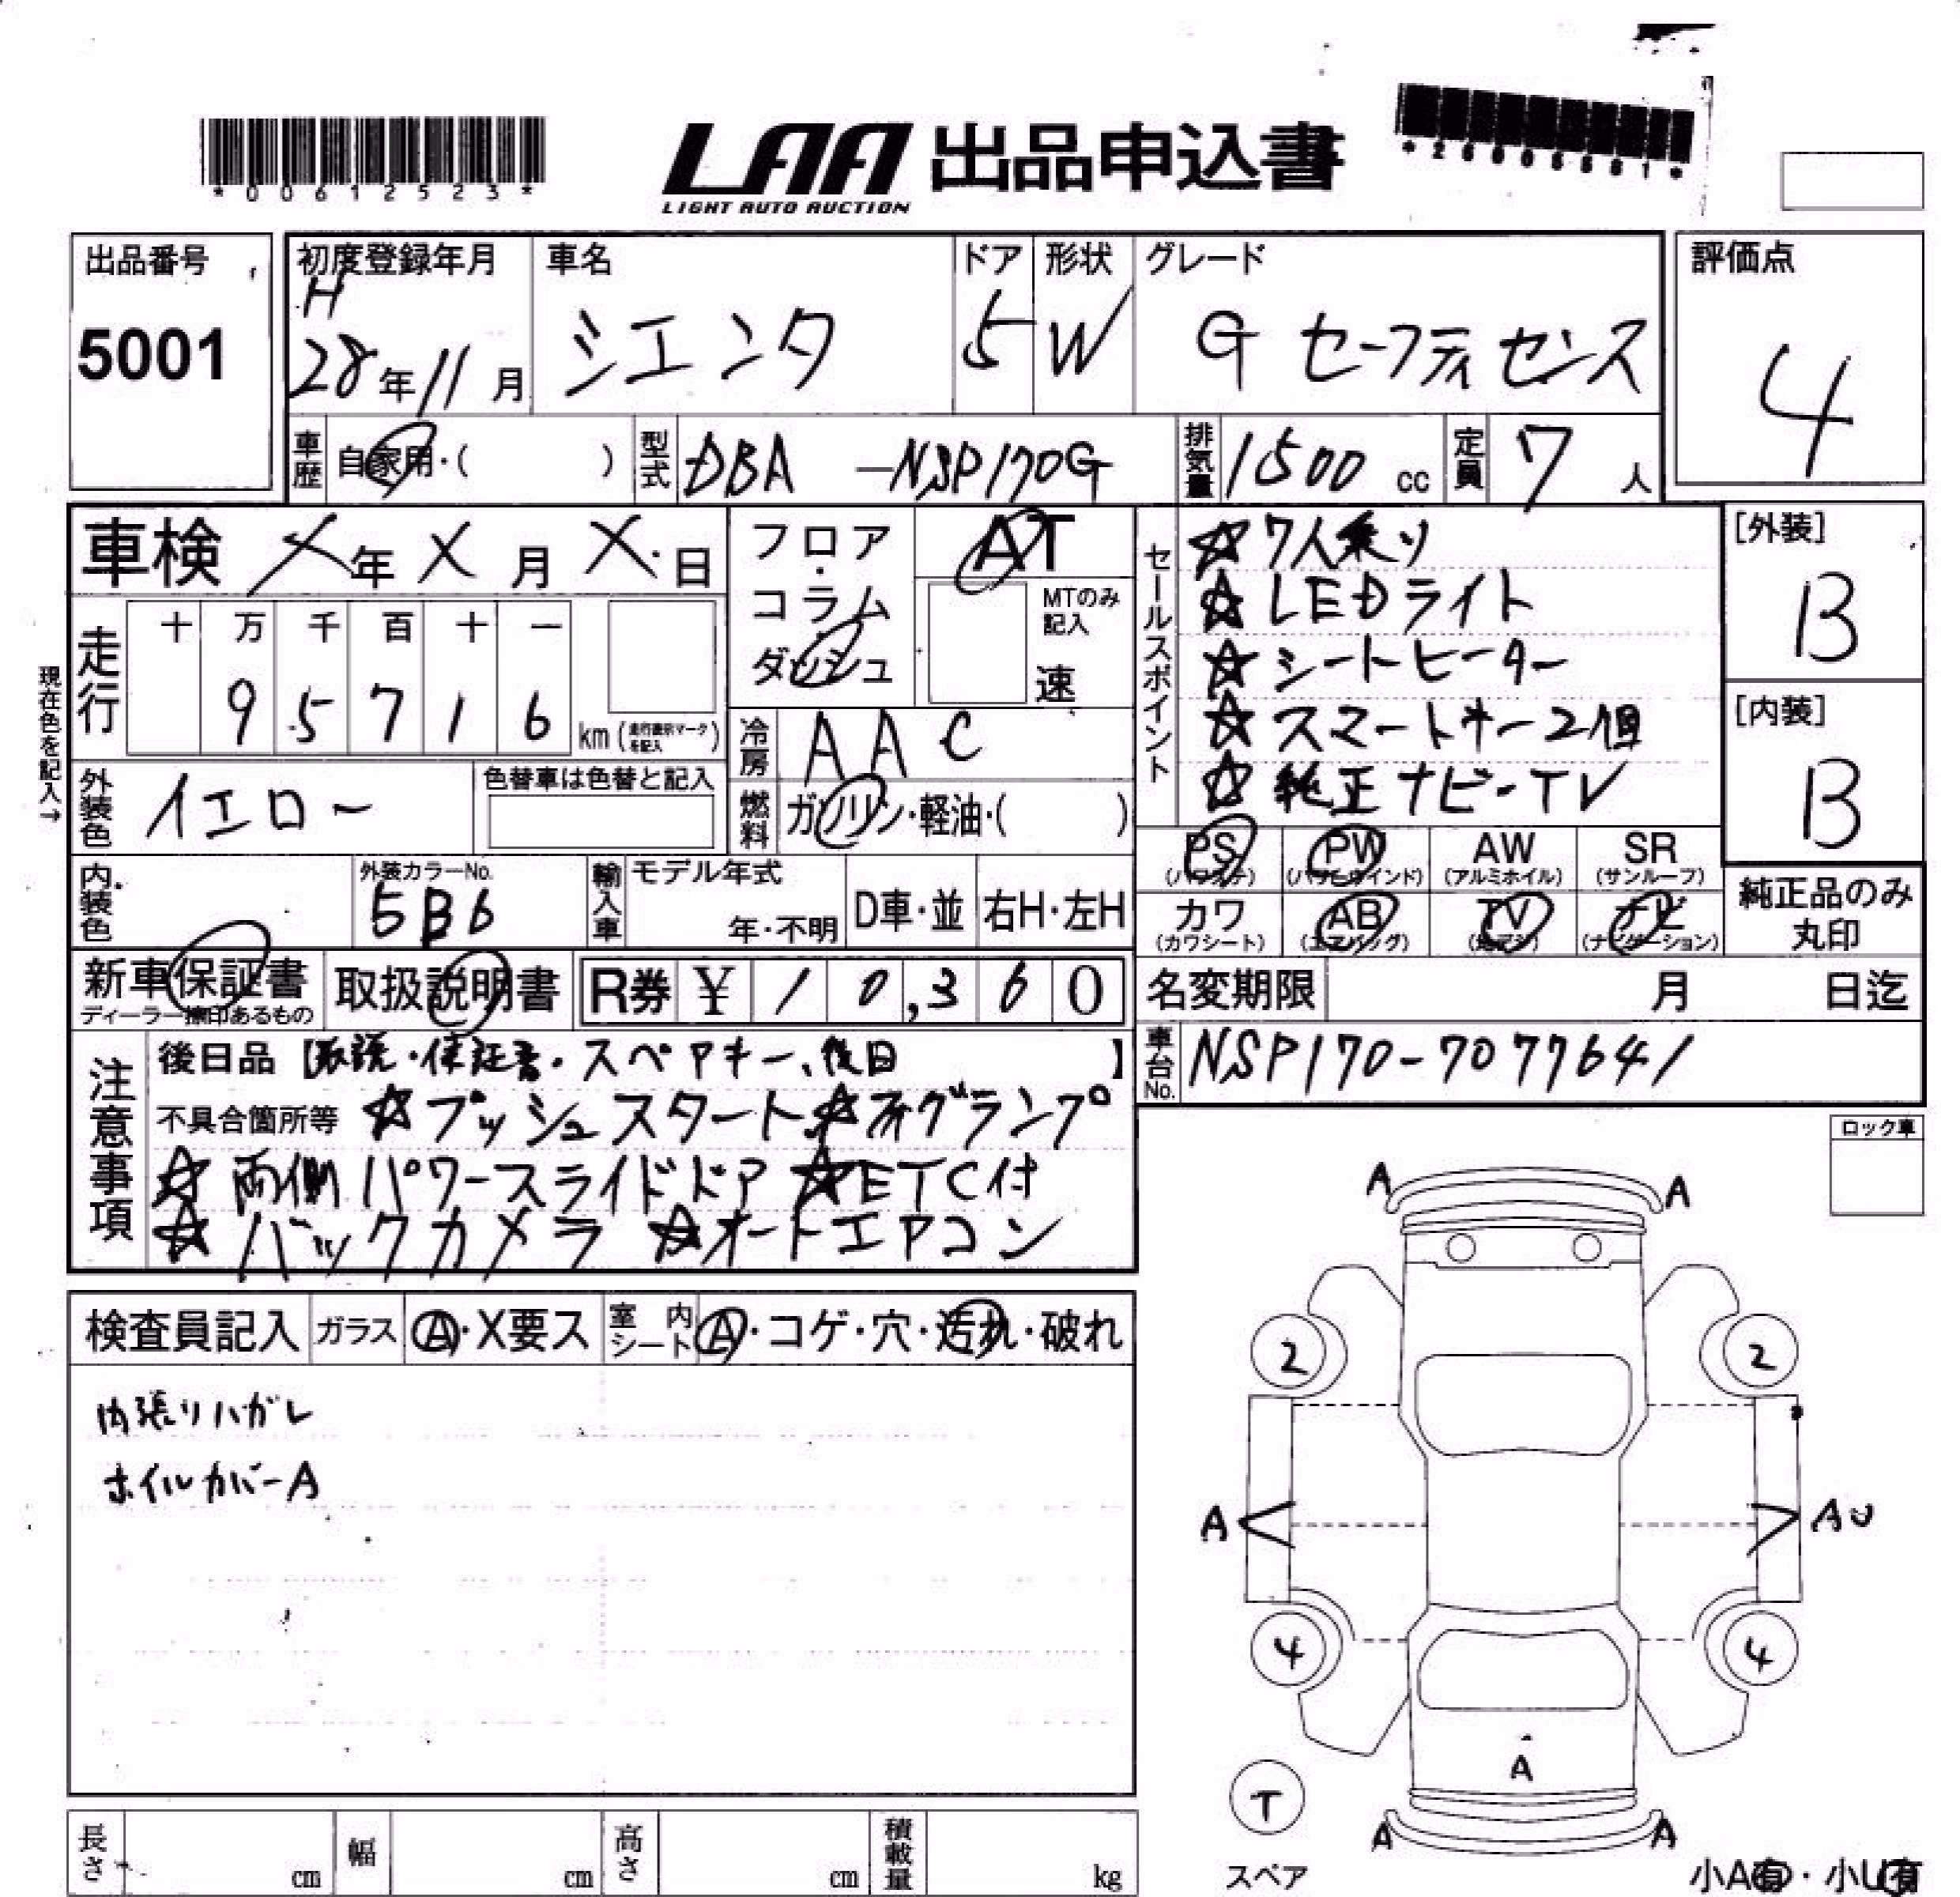 *00612523*
LAA 出品申込書
LIGHT AUTO AUCTION
出品番号
5001
初度登録年月
H
28年11月
車名
シエンタ
ドア
5
形状
W
グレード
G セーフティセンス
評価点
4
車歴
自家用・( )
型式
DBA -NSP170G
排気量
1500 cc
定員
7 人
車検 X年 X 月 X 日
フロア・コラム・ダッシュ
AT
MTのみ記入
速
セールスポイント
☆7人乗り
☆LEDライト
☆シートヒーター
☆スマートキー2個
☆純正ナビ-TV
[外装]
B
[内装]
B
現在色を記入→
走行
十 万 千 百 十 一
9 5 7 1 6 km
冷房
AAC
外装色
イエロー
色替車は色替と記入
燃料
ガソリン・軽油・( )
PS
(パワステ)
PW
(パワーウインド)
AW
(アルミホイル)
SR
(サンルーフ)
カワ
(カワシート)
AB
(エアバッグ)
TV
ナビ
(ナビゲーション)
純正品のみ
丸印
内装色
外装カラーNo.
5B6
輸入車
モデル年式
年・不明
D車・並
右H・左H
新車保証書
ディーラー捺印あるもの
取扱説明書
R券 ¥ 10,360
名変期限 月 日迄
車台No.
NSP170-7077641
注意事項
後日品【取説・保証書・スペアキー、後日】
不具合箇所等 ☆プッシュスタート☆フォグランプ
☆両側パワースライドドア ☆ETC付
☆バックカメラ ☆オートエアコン
ロック車
検査員記入
ガラス
A・X要ス
室内シート
A・コゲ・穴・汚れ・破れ
内張りハガレ
ホイルカバーA
A A
2 2
A AU
4 4
A
T
スペア
A A
小A有・小U有
長さ cm
幅 cm
高さ cm
積載量 kg